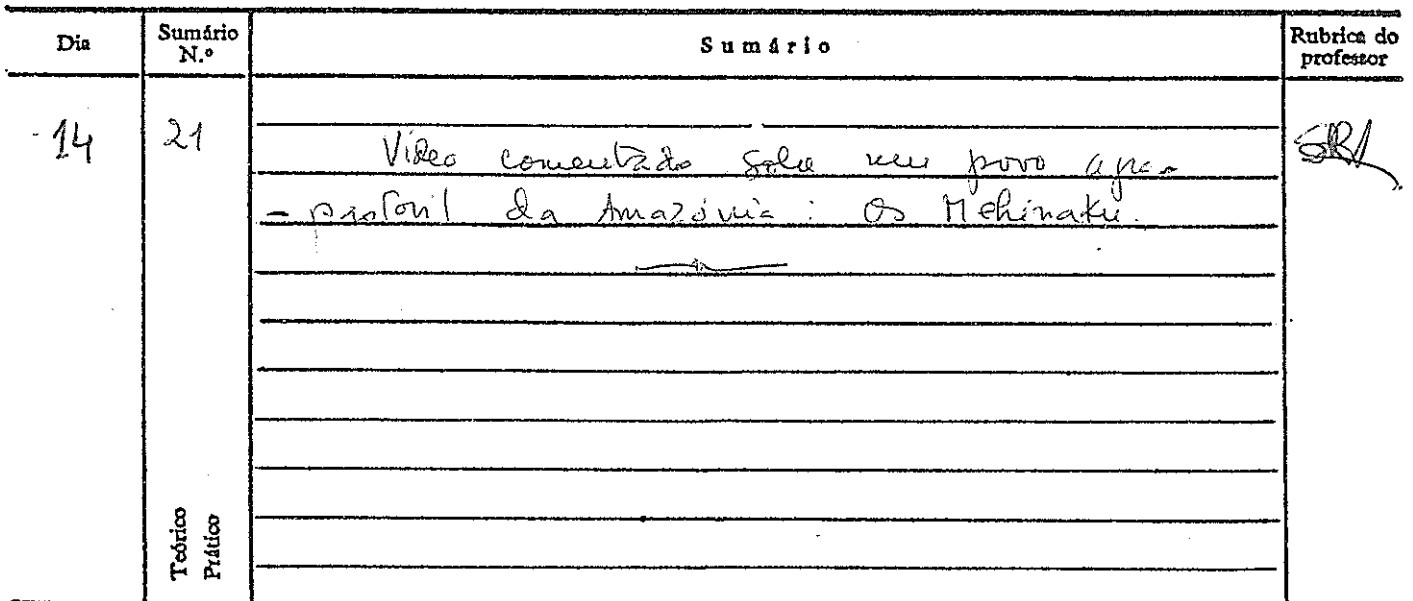 Dia
Sumário N.º
Sumário
Rubrica do professor
14
21
Video comentado sobre um povo agro-
- pastoril da Amazónia: Os Mehinaku.
Teórico
Prático